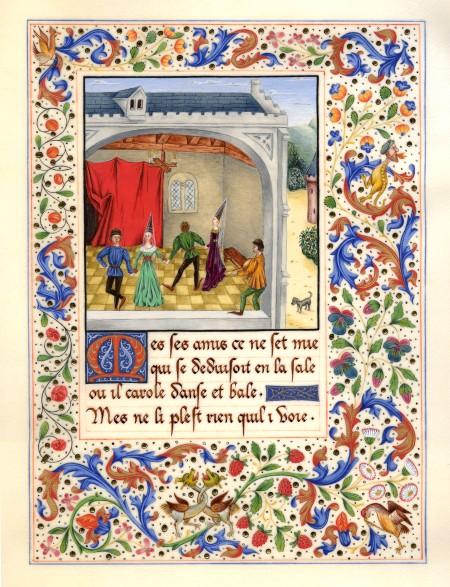 Mes ses amis ce ne set mie
qui se deduisoit en la sale
ou il carole danse et bale.
Mes ne li plest rien quil i voie.